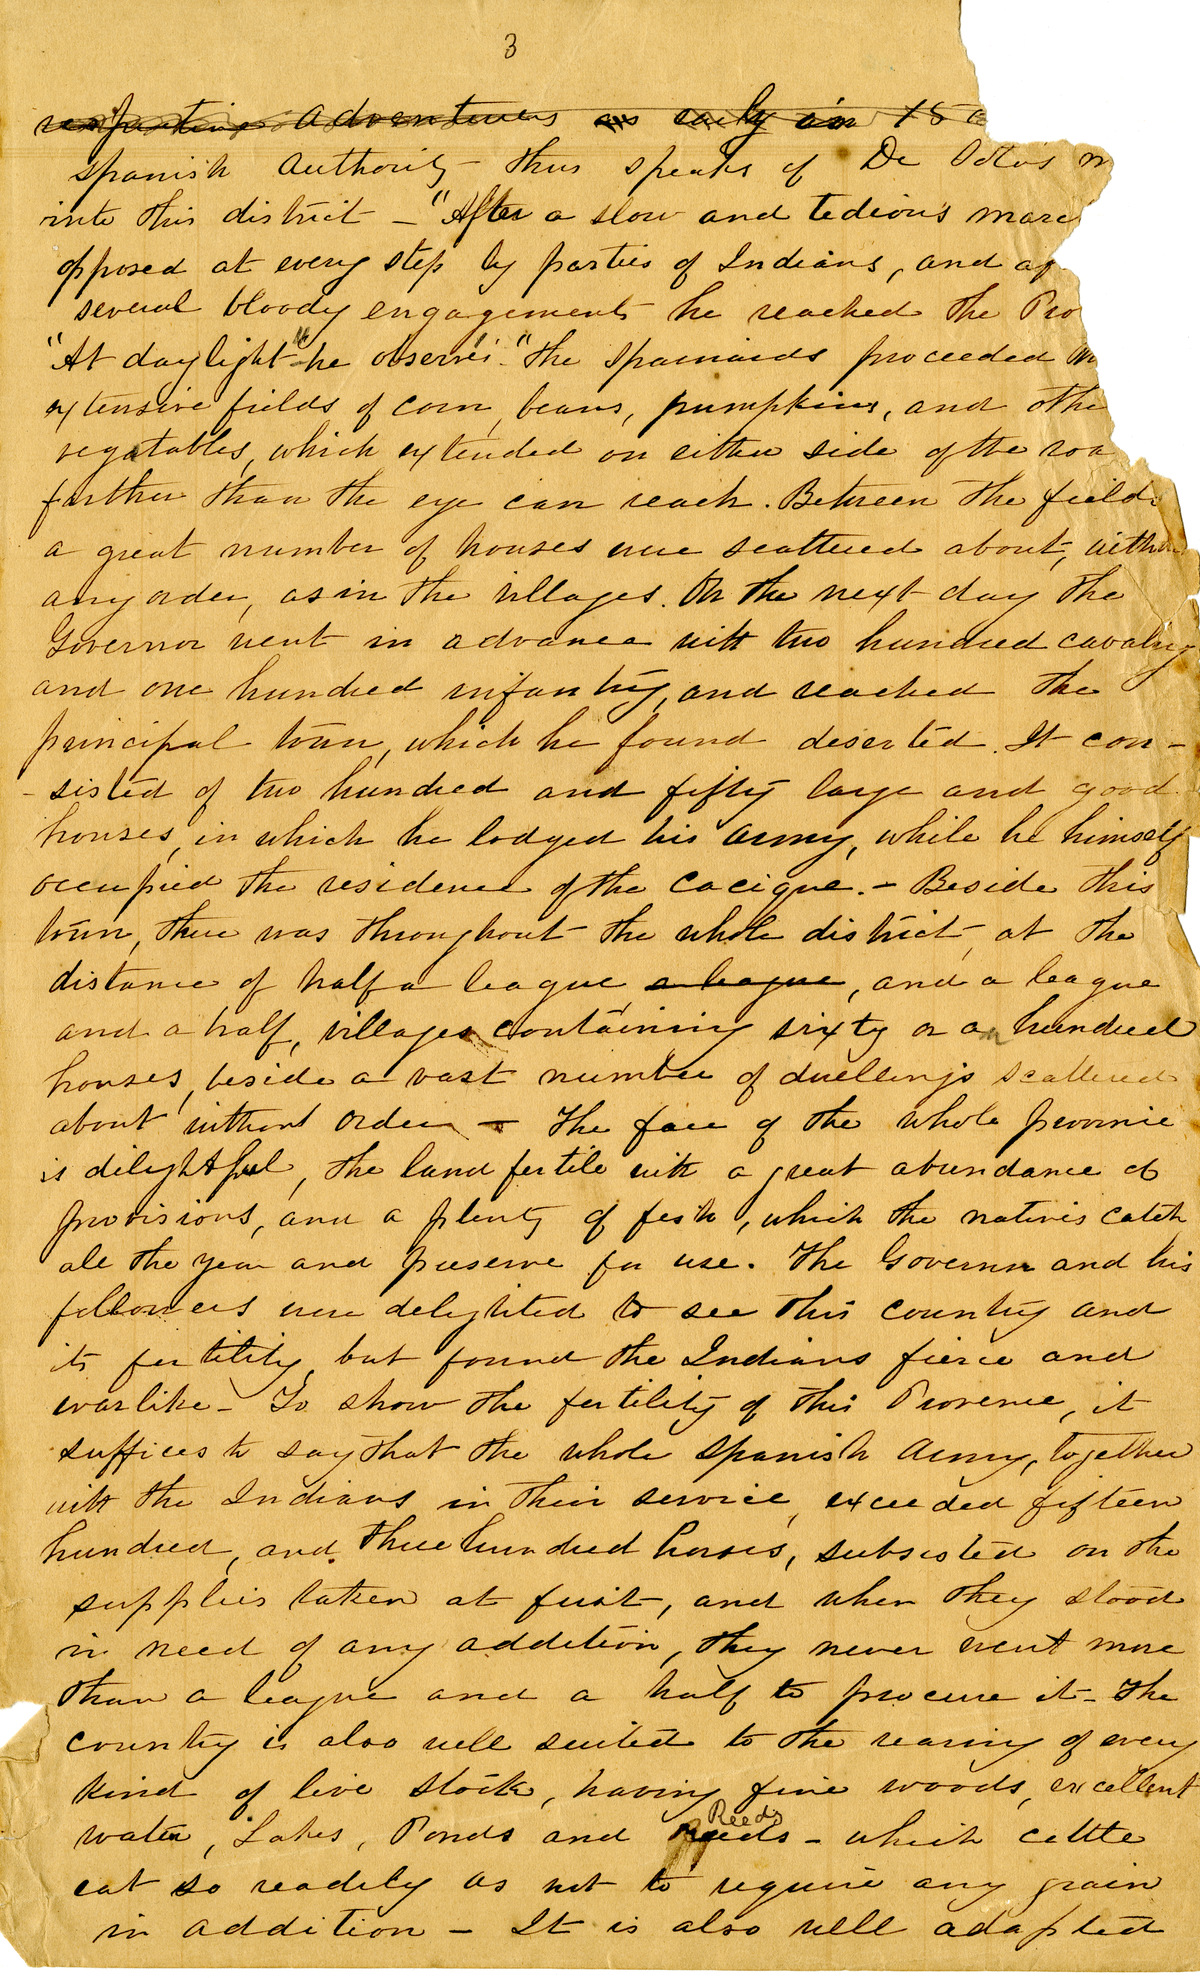 3
adventurers as early in 15
Spanish Authority thus speaks of De Soto's m
into this district - "After a slow and tedious marc
opposed at every step by parties of Indians, and af
several bloody engagements he reached the Pro
"At daylight" he observes "the Spaniards proceeded
extensive fields of corn, beans, pumpkins, and othe
vegatables, which extended on either side of the roa
farther than the eye can reach. Between the fields
a great number of houses were scattered about, witho
any order, as in the villages. On the next day the
Governor went in advance with two hundred cavalry
and one hundred infantry, and reached the
principal town, which he found deserted. It con-
-sisted of two hundred and fifty large and good
houses, in which he lodged his army, while he himself
occupied the residence of the Cacique. - Beside this
town, there was throughout the whole district, at the
distance of half a league, a league, and a league
and a half, villages containing sixty or a hundred
houses, beside a vast number of dwellings scattered
about without order - The face of the whole province
is delightful, the land fertile with a great abundance of
provisions, and a plenty of fish, which the natives catch
all the year and preserve for use. The Governor and his
followers were delighted to see this country and
its fertility, but found the Indians fierce and
warlike - To show the fertility of this Provence, it
suffices to say that the whole Spanish Army, together
with the Indians in their service, exceeded fifteen
hundred, and three hundred horses, subsisted on the
supplies taken at first, and when they stood
in need of any addition, they never went more
than a league and a half to procure it - The
country is also well suited to the rearing of every
kind of live stock, having fine woods, excellent
water, Lakes, Ponds and Reeds Reeds - which cattle
eat so readily as not to require any grain
in addition - It is also well adapted